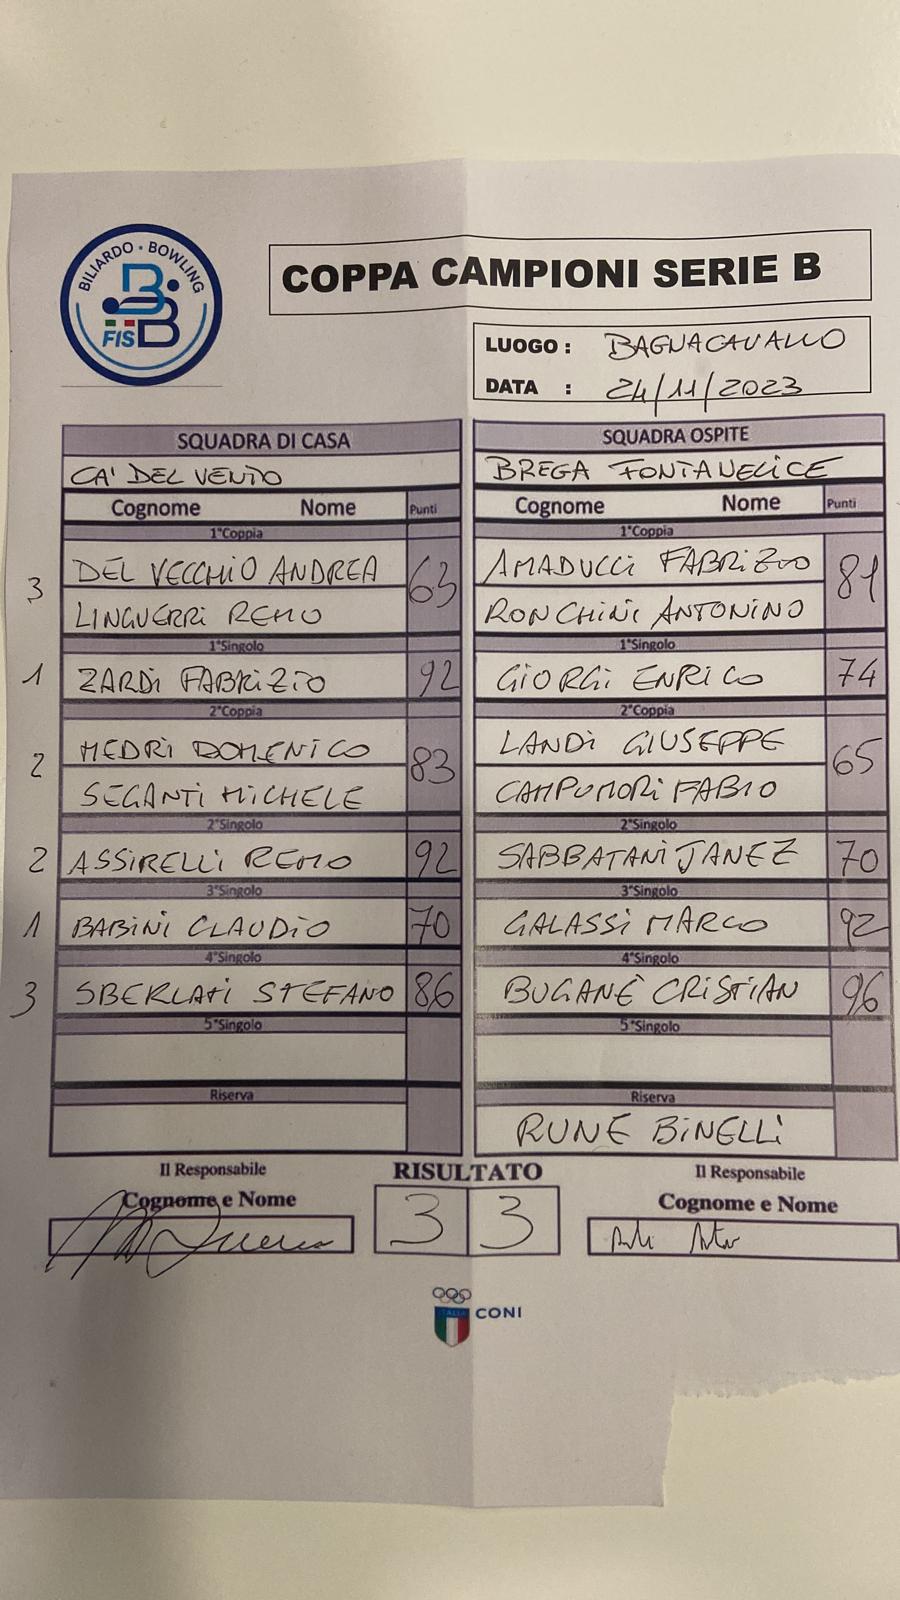 BILIARDO • BOWLING
FISBB
COPPA CAMPIONI SERIE B
LUOGO : BAGNACAVALLO
DATA : 24/11/2023
SQUADRA DI CASA
CA' DEL VENTO
Cognome Nome Punti
1°Coppia
3 DEL VECCHIO ANDREA 63
LINGUERRI REMO
1°Singolo
1 ZARDI FABRIZIO 92
2°Coppia
2 MEDRI DOMENICO 83
SEGANTI MICHELE
2°Singolo
2 ASSIRELLI REMO 92
3°Singolo
1 BABINI CLAUDIO 70
4°Singolo
3 SBERLATI STEFANO 86
5°Singolo
Riserva
SQUADRA OSPITE
BREGA FONTANELICE
Cognome Nome Punti
1°Coppia
AMADUCCI FABRIZIO 81
RONCHINI ANTONINO
1°Singolo
GIORGI ENRICO 74
2°Coppia
LANDI GIUSEPPE 65
CAMPOMORI FABIO
2°Singolo
SABBATANI JANEZ 70
3°Singolo
GALASSI MARCO 92
4°Singolo
BUGANÈ CRISTIAN 96
5°Singolo
Riserva
RUNE BINELLI
Il Responsabile RISULTATO Il Responsabile
Cognome e Nome 3 3 Cognome e Nome
ITALIA CONI